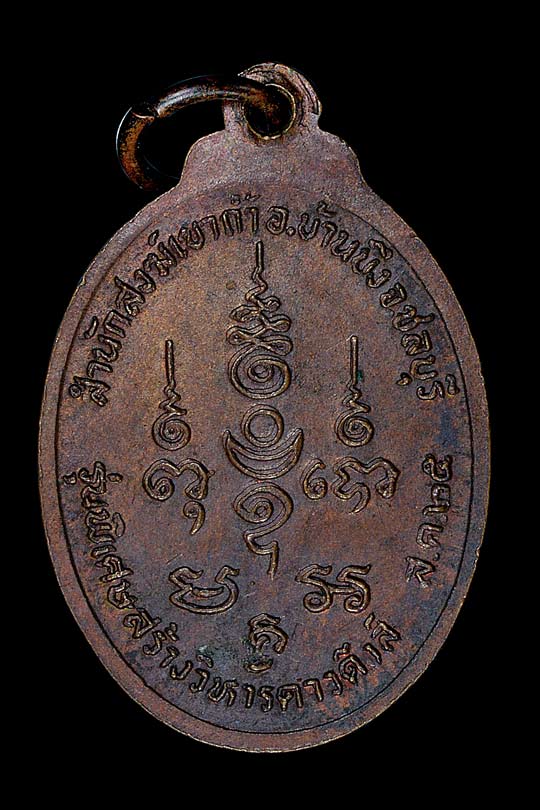 สำนักสงฆ์เขาถ้ำ อ.บ้านบึง จ.ชลบุรี
รุ่นพิเศษสร้างวิหารดาวดึงส์ ส.ค.๒๕